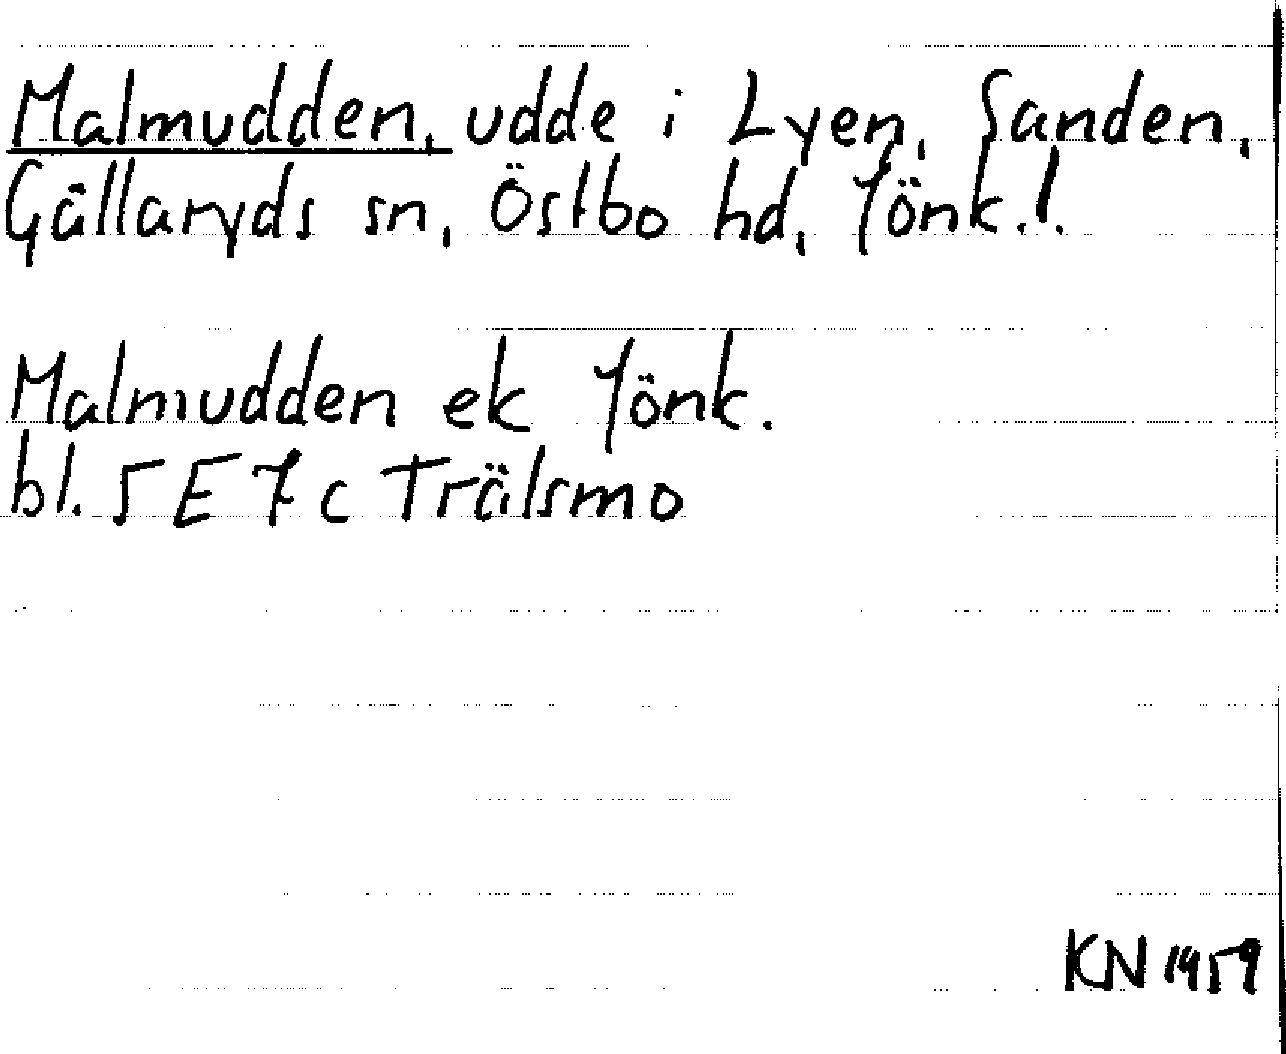 Malmudden, udde i Lyen, Sanden,
Gällaryds sn, Östbo hd, Jönk. l.
Malmudden ek Jönk.
bl. 5 E 7 c Trälsmo
KN 1959